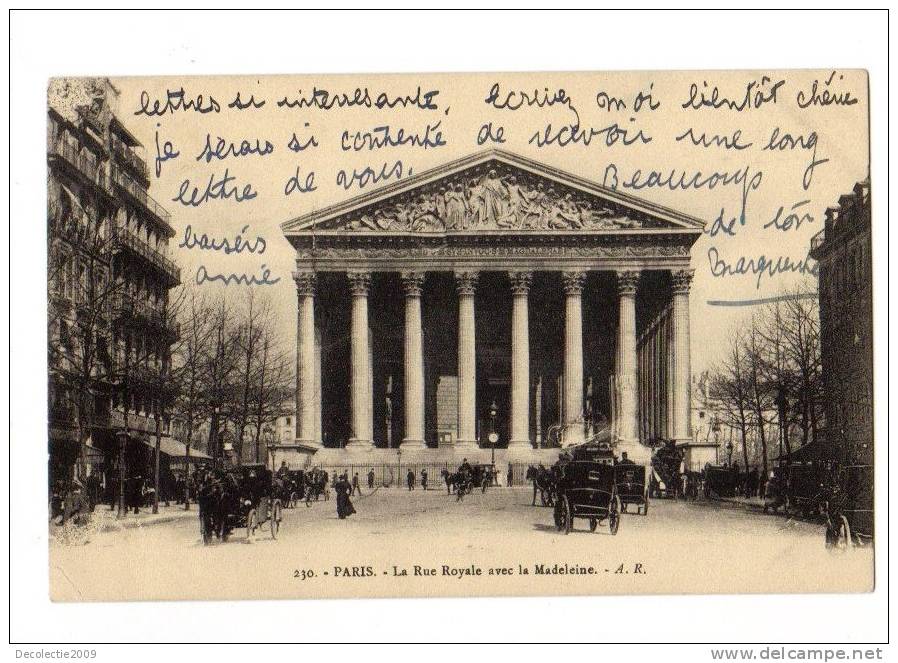 lettres si interresante. Ecrivez moi bientôt chérie
je serais si contente de recevoir une long
lettre de vous. Beaucoup de
baisérs de ton
amie Marguerite
230. - PARIS. - La Rue Royale avec la Madeleine. - A. R.
Decolectie2009
www.delcampe.net